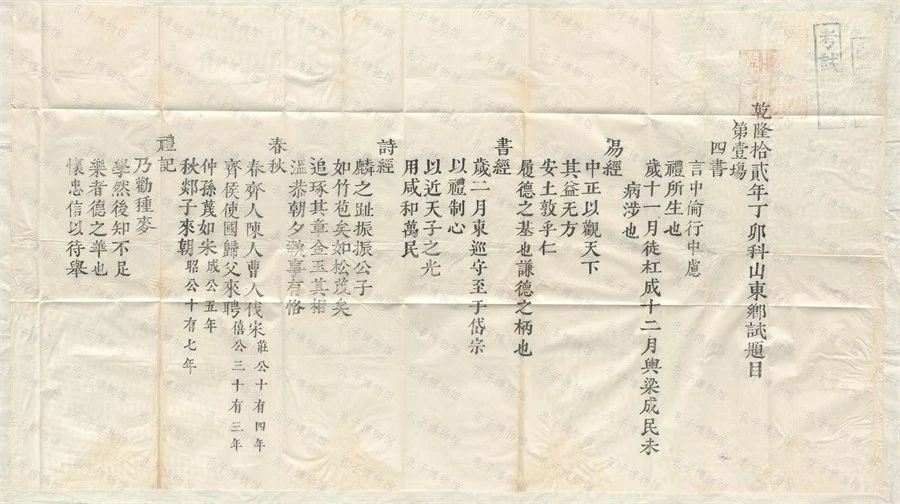 乾隆拾貳年丁卯科山東鄉試題目
第壹塲
四書
言中倫行中慮
禮所生也
歲十一月徒杠成十二月輿梁成民未
病涉也
易經
中正以觀天下
其益无方
安土敦乎仁
履德之基也謙德之柄也
書經
歲二月東巡守至于岱宗
以禮制心
以近天子之光
用咸和萬民
詩經
麟之趾振振公子
如竹苞矣如松茂矣
追琢其章金玉其相
溫恭朝夕執事有恪
春秋
春齊人陳人曹人伐宋莊公十有四年
齊侯使國歸父來聘僖公三十有三年
仲孫蔑如宋成公五年
秋郯子來朝昭公十有七年
禮記
乃勸種麥
學然後知不足
樂者德之華也
懷忠信以待舉
考試
孔子博物館